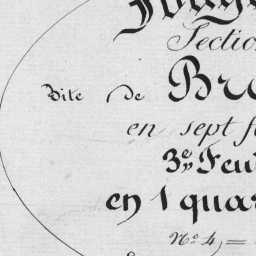 Sectio
Dite de Bro
en sept f
3e Feu
en 1 quar
No 4,=